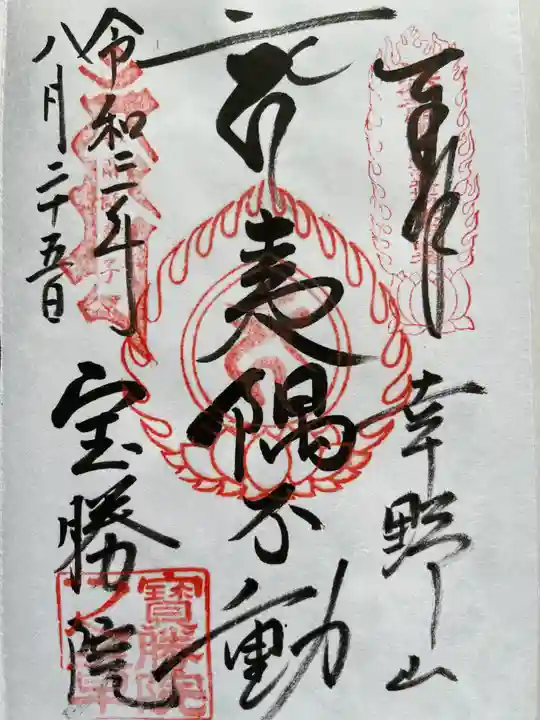 奉拝 幸野山
夷隅不動
宝勝院
令和二年
八月二十五日
寶勝院